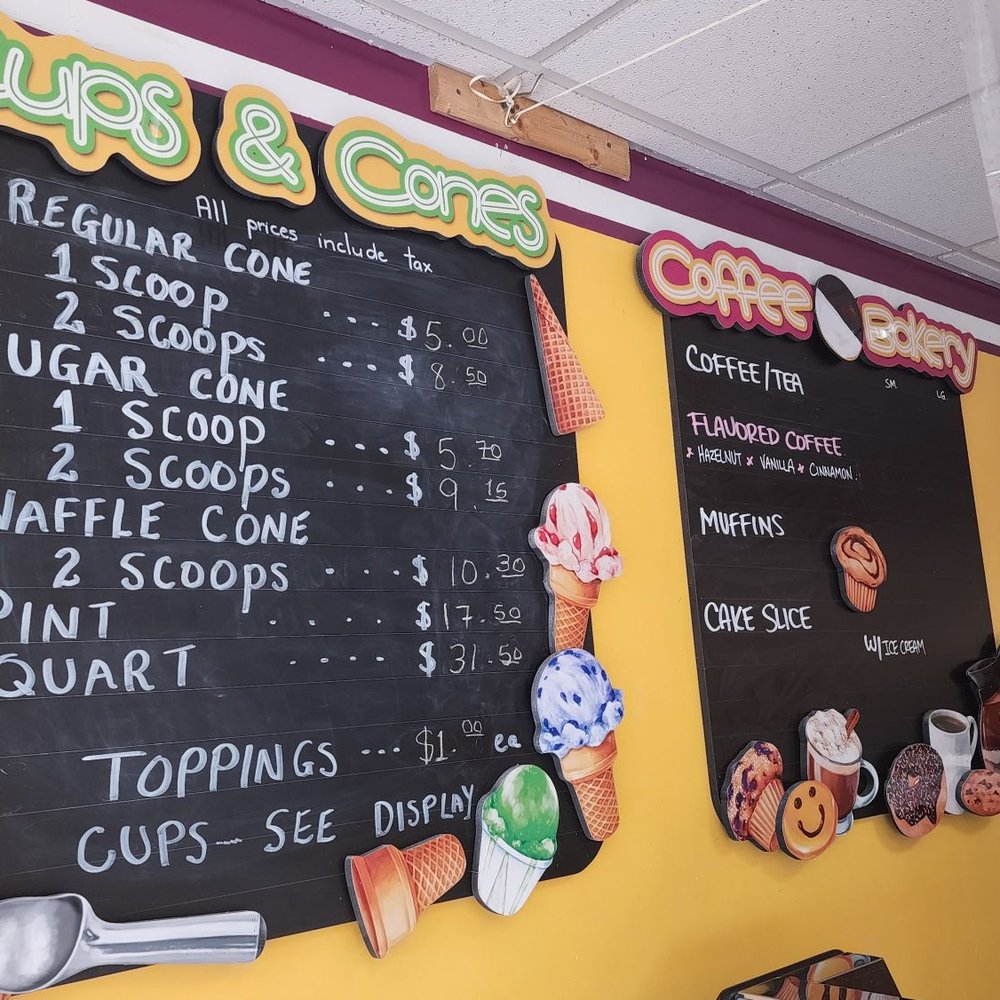 ups & Cones
All prices include tax
REGULAR CONE
1 SCOOP ... $5.00
2 SCOOPS ... $8.50
UGAR CONE
1 SCOOP ... $5.70
2 SCOOPS ... $9.15
WAFFLE CONE
2 SCOOPS ... $10.30
PINT .... $17.50
QUART .... $31.50
TOPPINGS ... $1.00 ea
CUPS--- SEE DISPLAY
Coffee Bakery
COFFEE/TEA SM. LG
FLAVORED COFFEE
* HAZELNUT * VANILLA * CINNAMON.
MUFFINS
CAKE SLICE
W/ICE CREAM